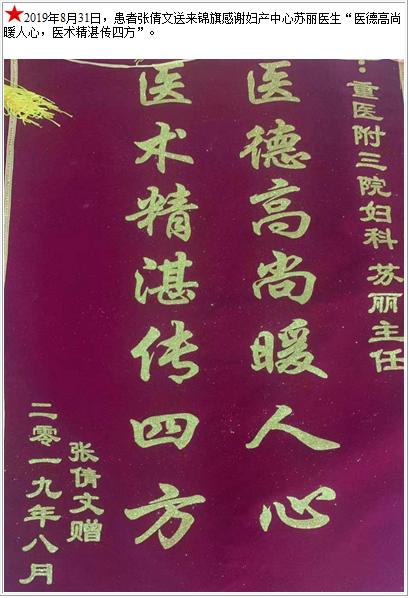 ★2019年8月31日，患者张倩文送来锦旗感谢妇产中心苏丽医生“医德高尚
暖人心，医术精湛传四方”。
：重医附三院妇科 苏丽主任
医德高尚暖人心
医术精湛传四方
张倩文赠
二零一九年八月